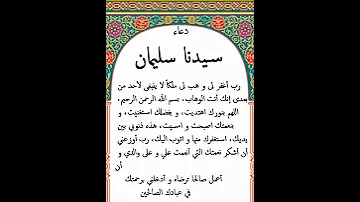 دعاء
سيدنا سليمان
رب أغفر لى و هب لى ملكاً لا ينبغى لأحد من
بعدى إنك أنت الوهاب، بسم الله الرحمن الرحيم،
اللهم بنورك اهتديت، و بفضلك استغنيت، و
بنعمتك اصبحت و امسيت، هذه ذنوبي بين
يديك، استغفرك منها و اتوب اليك، رب أوزعني
أن أشكر نعمتك التي أنعمت علي و على والدي و
أن
أعمل صالحا ترضاه و أدخلني برحمتك
في عبادك الصالحين